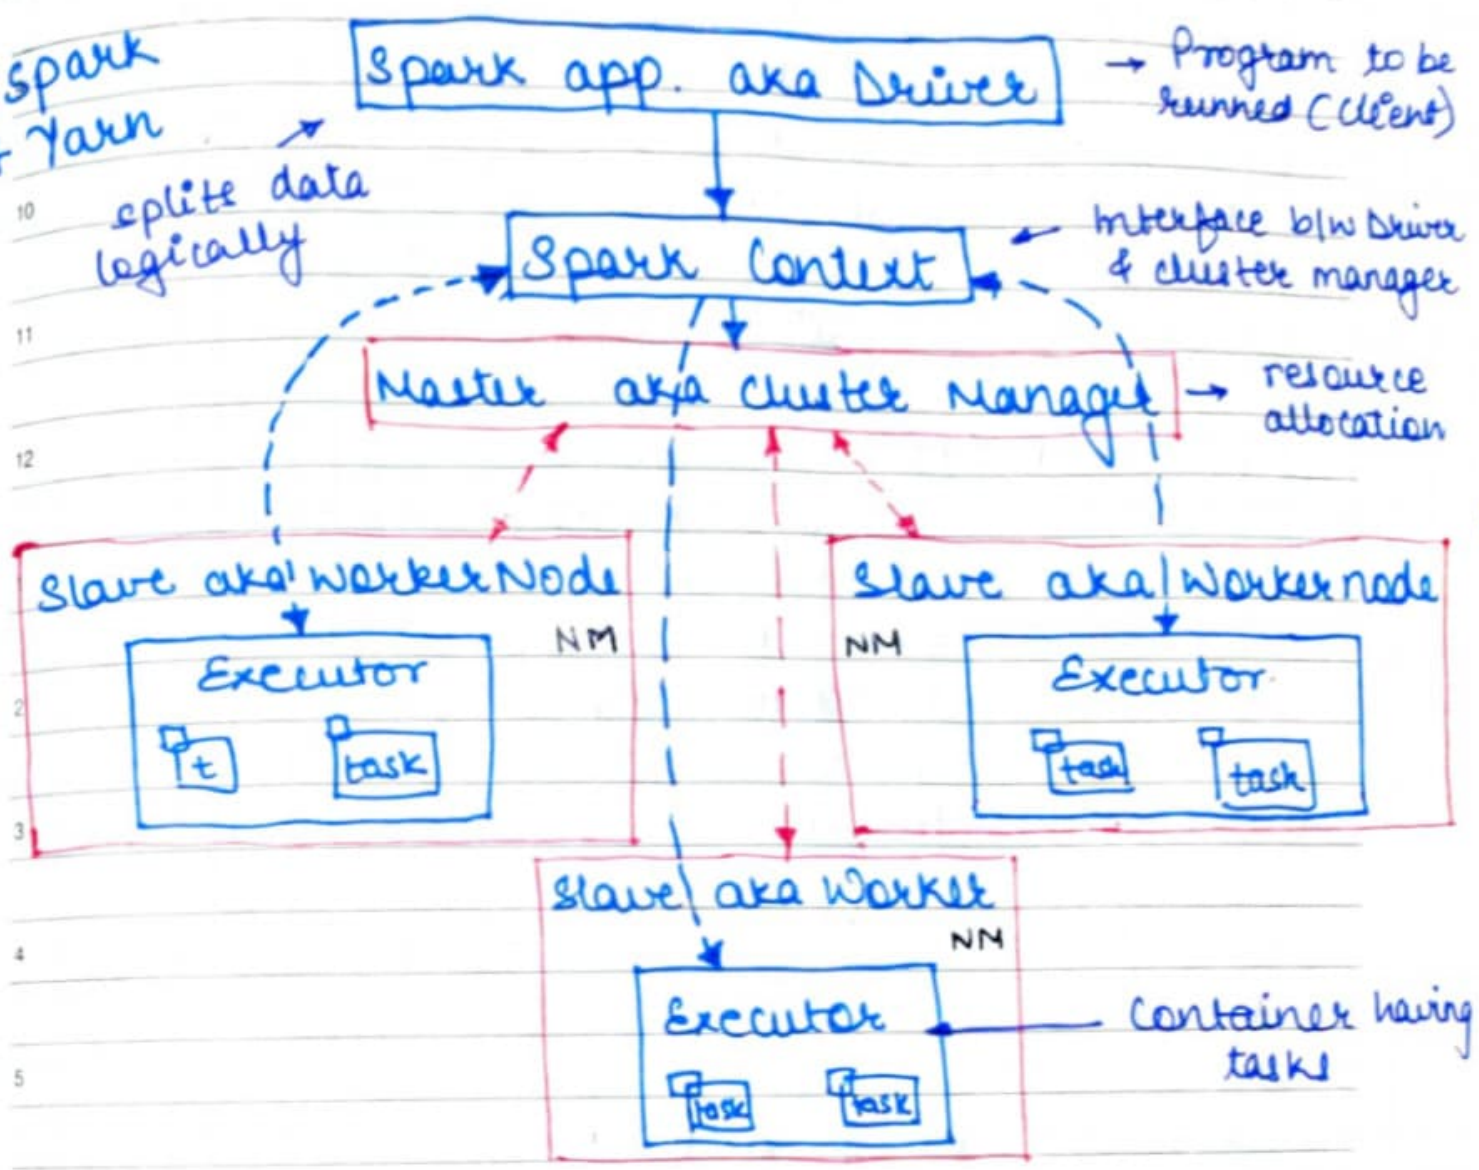 Spark
+ Yarn
Spark app. aka Driver
→ Program to be
runned (Client)
splits data
logically
Spark Context
Interface b/w Driver
& cluster manager
Master aka Cluster Manager
→ resource
allocation
Slave aka WorkerNode
NM
Executor
t
task
Slave aka Workernode
NM
Executor
task
task
Slave aka Worker
NM
Executor
task
task
Container having
tasks
10
11
12
2
3
4
5